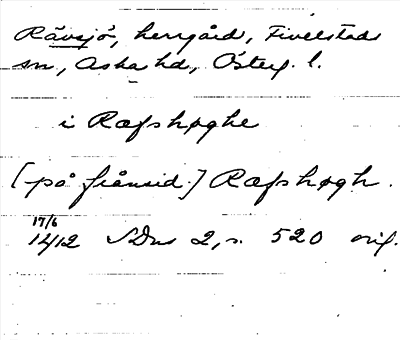 Rävsjö, herrgård, Fivelstads
sn, Aska hd, Österg. l.
i Ræfshøghe
[på frånsid.] Ræfshøgh.
17/6
1412 SDns 2, s. 520 orig.